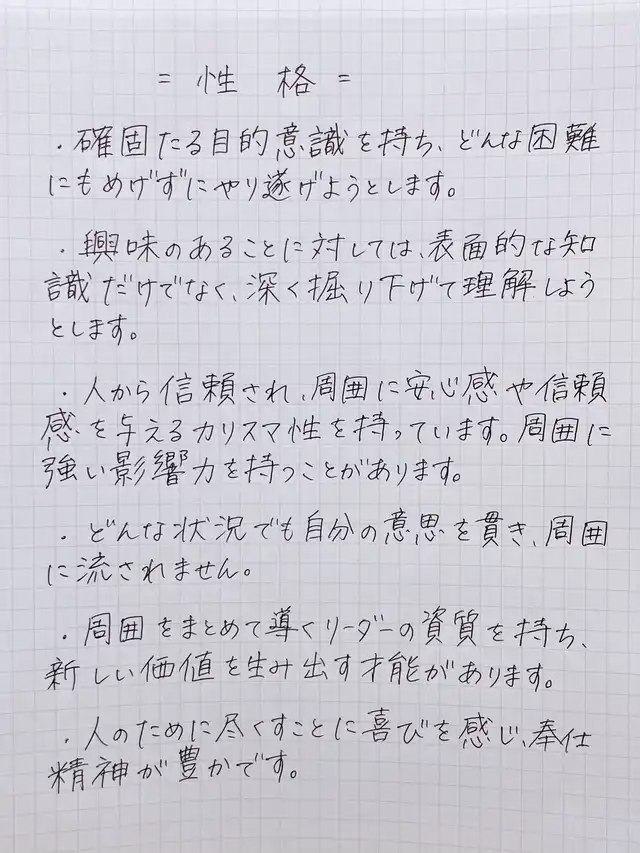 = 性 格 =
・確固たる目的意識を持ち、どんな困難
にもめげずにやり遂げようとします。
・興味のあることに対しては、表面的な知
識だけでなく、深く掘り下げて理解しよう
とします。
・人から信頼され、周囲に安心感や信頼
感を与えるカリスマ性を持っています。周囲に
強い影響力を持つことがあります。
・どんな状況でも自分の意思を貫き、周囲
に流されません。
・周囲をまとめて導くリーダーの資質を持ち、
新しい価値を生み出す才能があります。
・人のために尽くすことに喜びを感じ、奉仕
精神が豊かです。